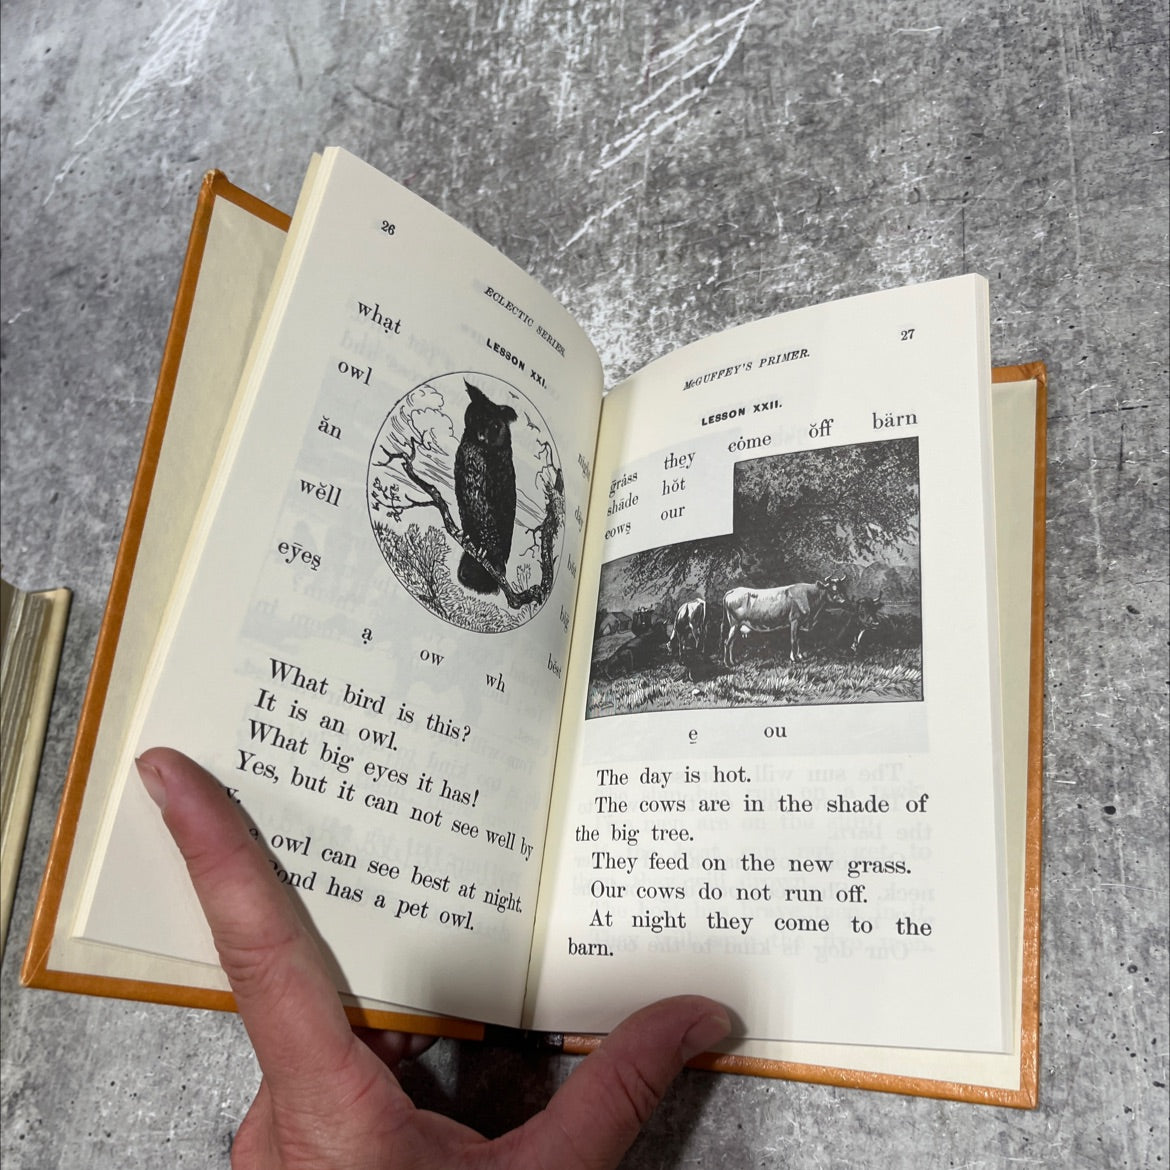 26
ECLECTIC SERIES.
LESSON XXI.
whạt
owl
ăn
wĕll
eȳeṣ
night
day
but
big
bĕst
ạ ow wh
What bird is this?
It is an owl.
What big eyes it has!
Yes, but it can not see well by
y.
owl can see best at night.
ond has a pet owl.
27
McGUFFEY'S PRIMER.
LESSON XXII.
grȧss they ȯme ŏff bärn
shāde hŏt
ows̱ our
e̱ ou
The day is hot.
The cows are in the shade of
the big tree.
They feed on the new grass.
Our cows do not run off.
At night they come to the
barn.